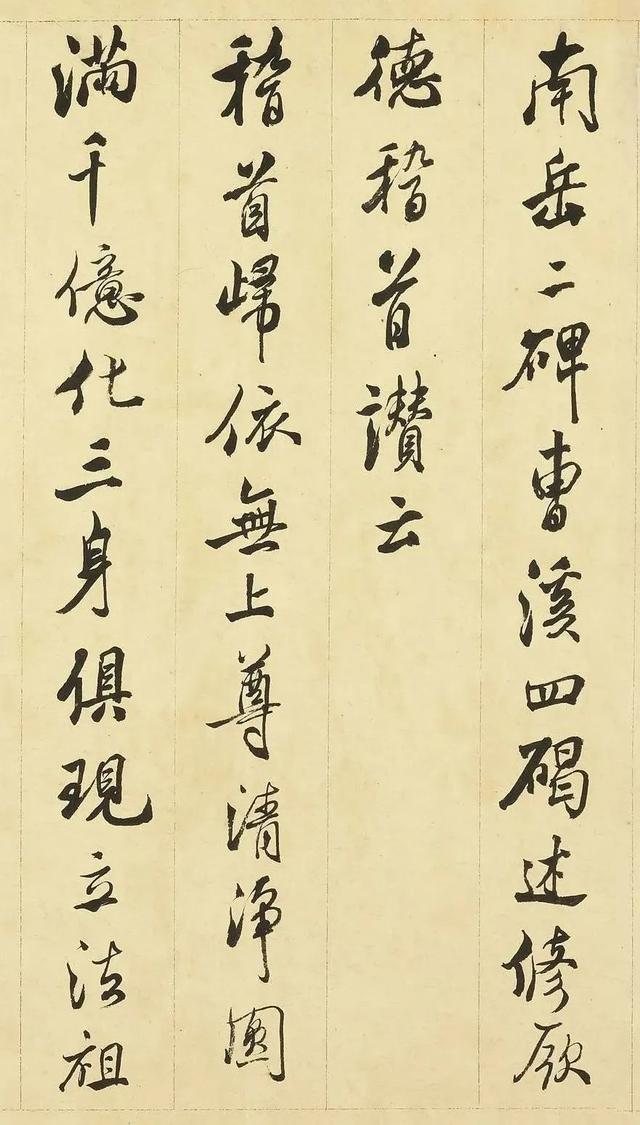 南岳二碑曹溪四碣述修厥
德稽首讃云
稽首歸依無上尊清淨圓
滿千億化三身俱現立法祖